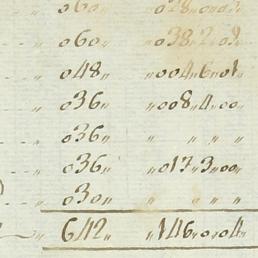 o60 „ „ 028 „ 0 „ 03 „
o60 „ „ 038 „ 2 „ 09
„ o48 „ „ 004 „ 6 „ 01
„ o36 „ „ 008 „ 4 „ 00
„ o36 „ „ „ „ „
„ o36 „ „ 017 „ 3 „ 00
„ o30 „ „ „ „ „
„ 642 „ „ 146 „ 0 „ 04